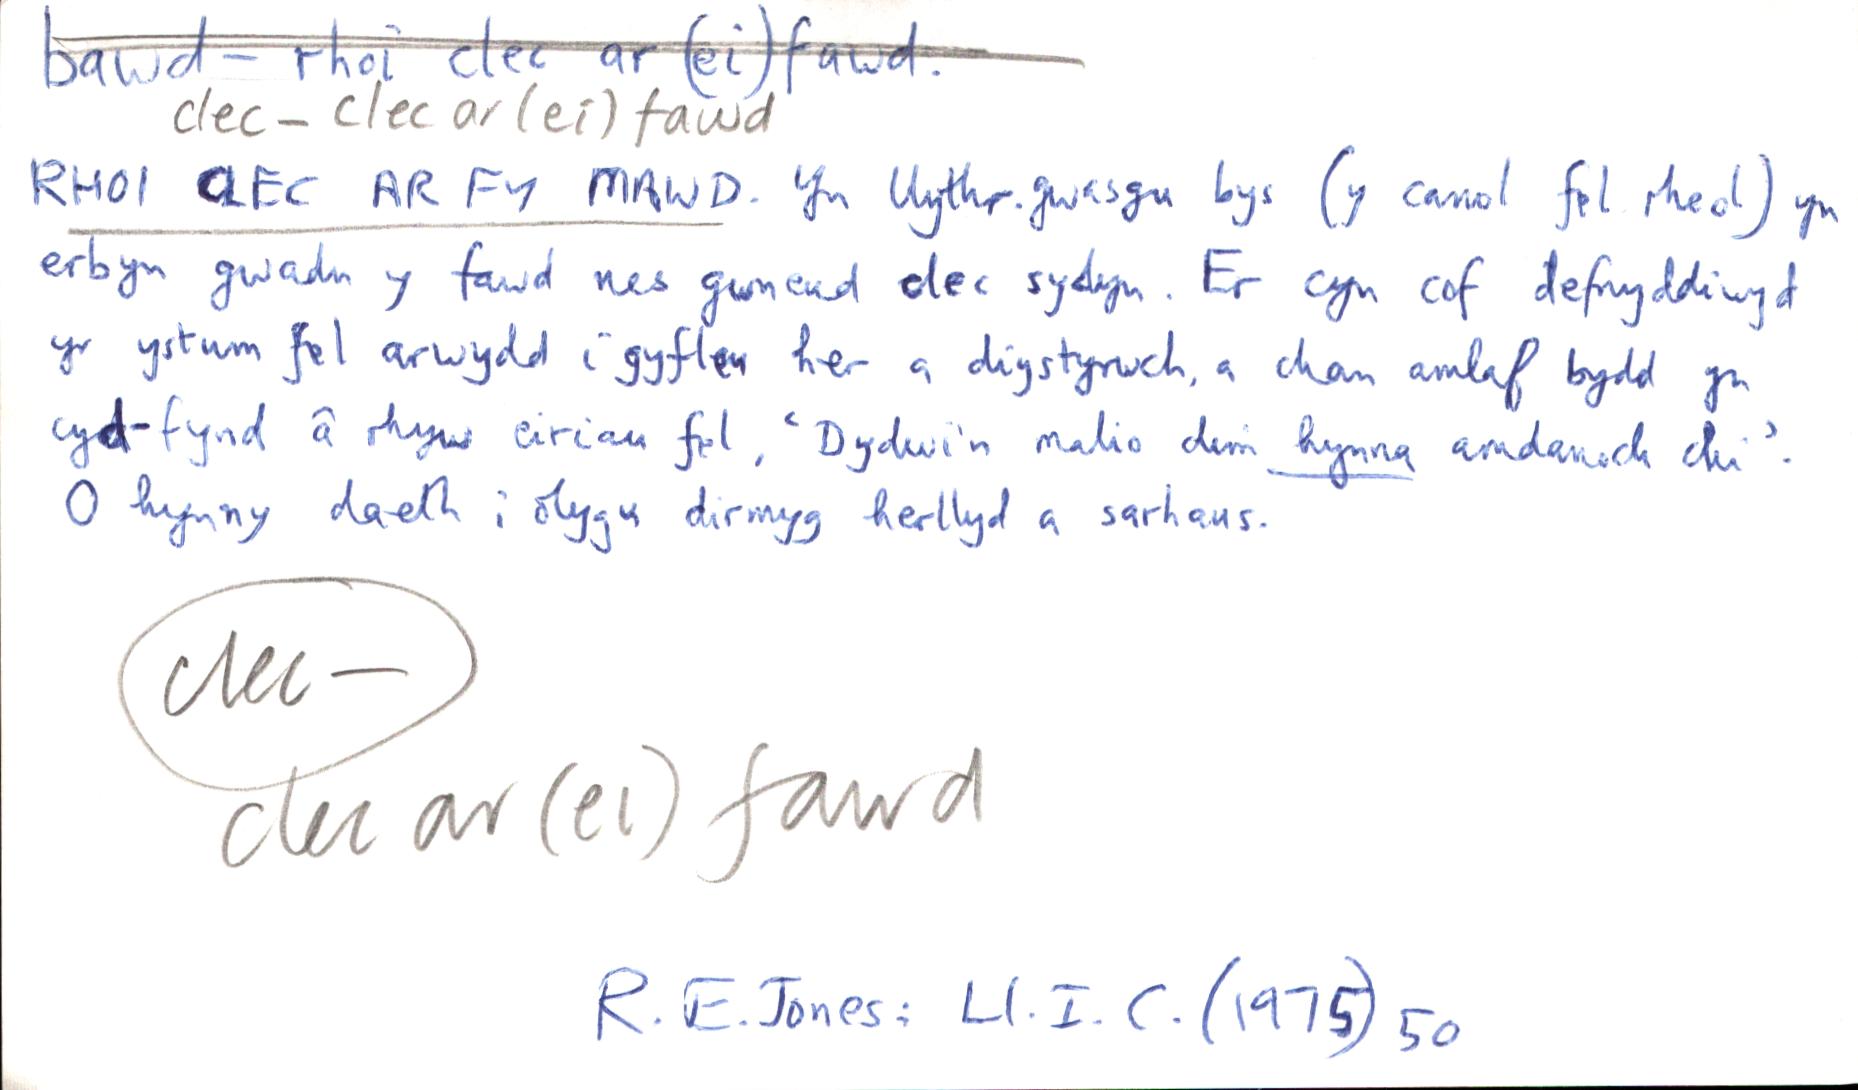 bawd – rhoi clec ar (ei) fawd.
clec – clec ar (ei) fawd
RHOI CLEC AR FY MAWD. Yn llythr. gwasgu bys (y canol fel rheol) yn
erbyn gwadn y fawd nes gwneud clec sydyn. Er cyn cof defnyddiwyd
yr ystum fel arwydd i gyfleu her a digstyrwch, a chan amlaf bydd yn
cyd-fynd â rhyw eiriau fel, 'Dydwi'n malio dim hynna amdanoch chi'.
O hynny daeth i olygu dirmyg herllyd a sarhaus.
clec –
clec ar (ei) fawd
R. E. Jones: Ll. I. C. (1975) 50